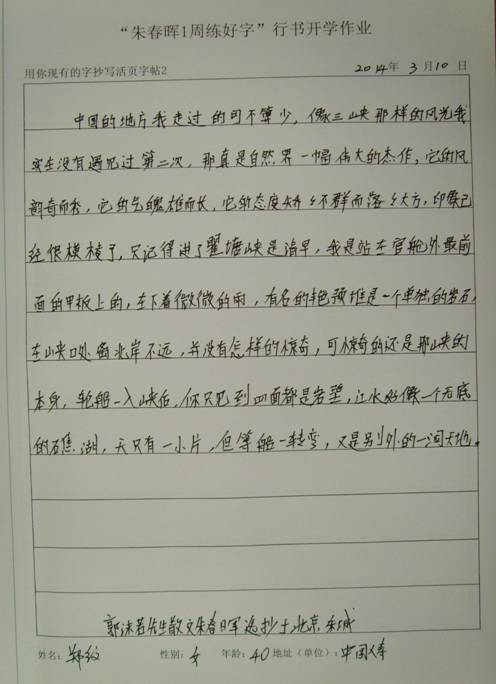 “朱春晖1周练好字”行书开学作业
用你现有的字抄写活页字帖2 2014年 3月10日
中国的地方我走过的可不算少，像三峡那样的风光我
实在没有遇见过第二次，那真是自然界一幅伟大的杰作，它的风
韵奇而秀，它的气魄雄而长，它的态度矫矫不群而落落大方，印象已
经很模棱了，只记得进了瞿塘峡是清早，我是站在官舱外最前
面的甲板上的，在下着微微的雨，有名的艳预堆是一个单独的岩石，
在山峡口处离北岸不远，并没有怎样的惊奇，可惊奇的还是那山峡的
本身，轮船一入峡后，你只见到四面都是岩壁，江水好像一个无底
的礁湖，天只有一小片，但等船一转弯，又是别外的一洞天地。
郭沫若先生散文朱春晖选抄于北京
姓名：郑 性别：女 年龄：40 地址（单位）：中国